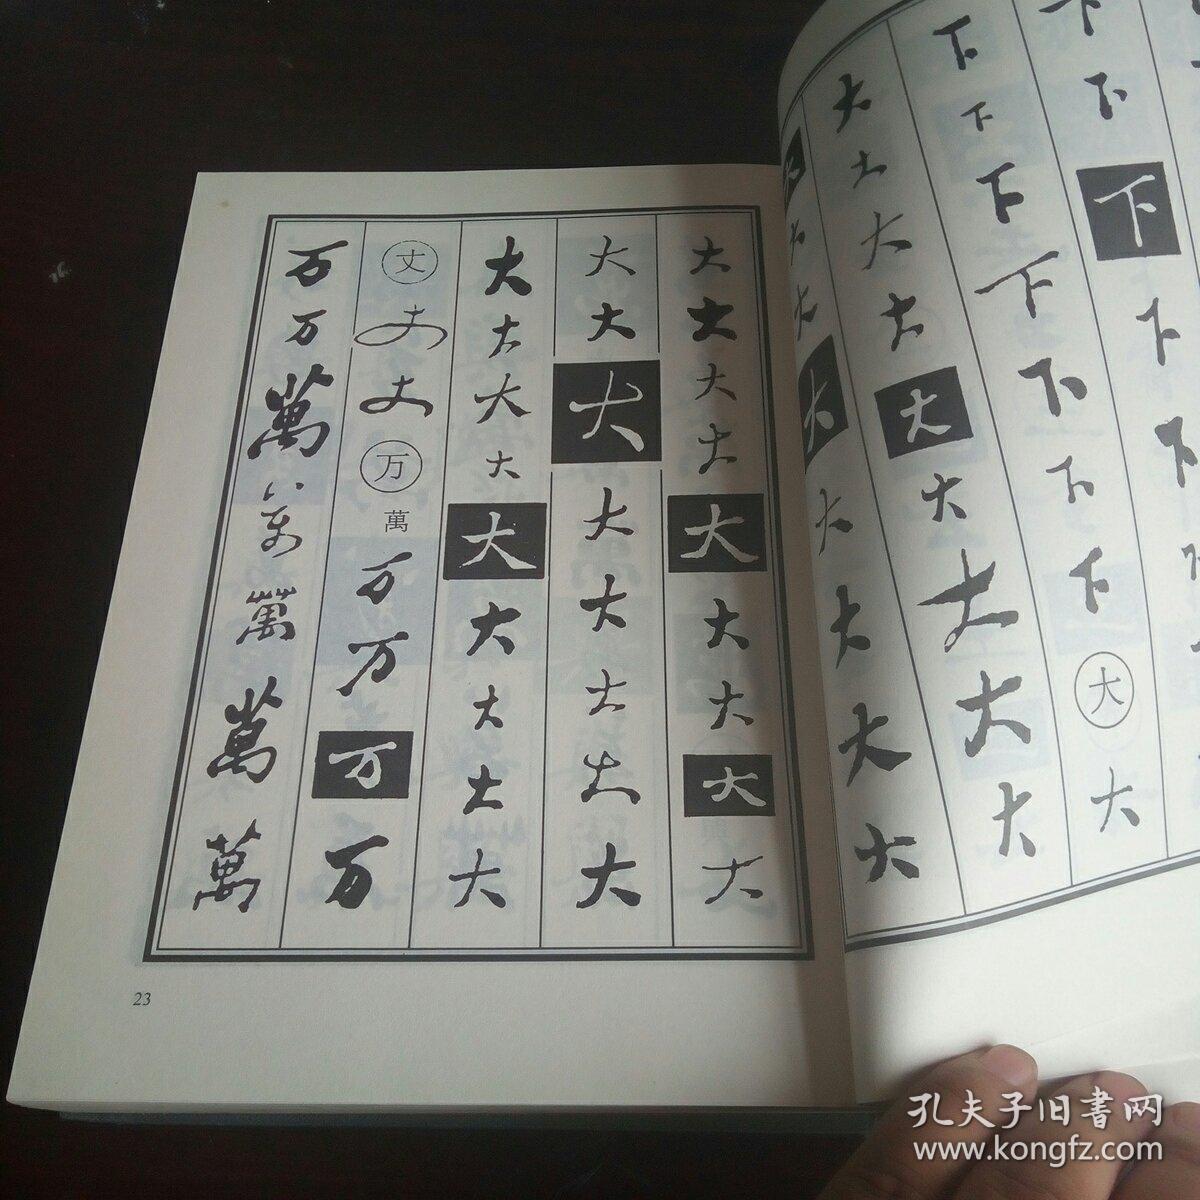 下下下下下
下下下下下下下大大
大大大大大大大大大
大大大大大大大大
大大大大大大大大大
大大大大大大大大
大大大大大大大大大
丈丈丈万萬万万万万
万万萬萬萬萬萬
23
孔夫子旧書网
www.kongfz.com